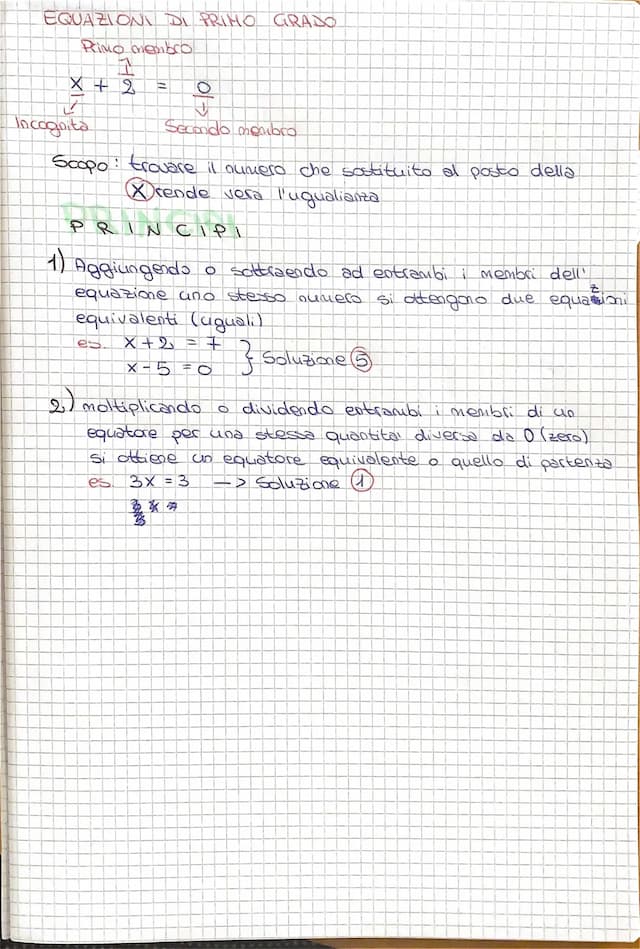 EQUAZIONI DI PRIMO GRADO
Primo membro
x + 2 = 0
Incognita Secondo membro
Scopo: trovare il numero che sostituito al posto della
X rende vera l'uguaglianza
PRINCIPI
1) Aggiungendo o sottraendo ad entrambi i membri dell'
equazione uno stesso numero si ottengono due equazioni
equivalenti (uguali)
es. x+2 = 7
x-5 = 0 } Soluzione 5
2) moltiplicando o dividendo entrambi i membri di un
equatore per una stessa quantità diversa da 0 (zero)
si ottiene un equatore equivalente a quello di partenza
es. 3x = 3 -> Soluzione 1